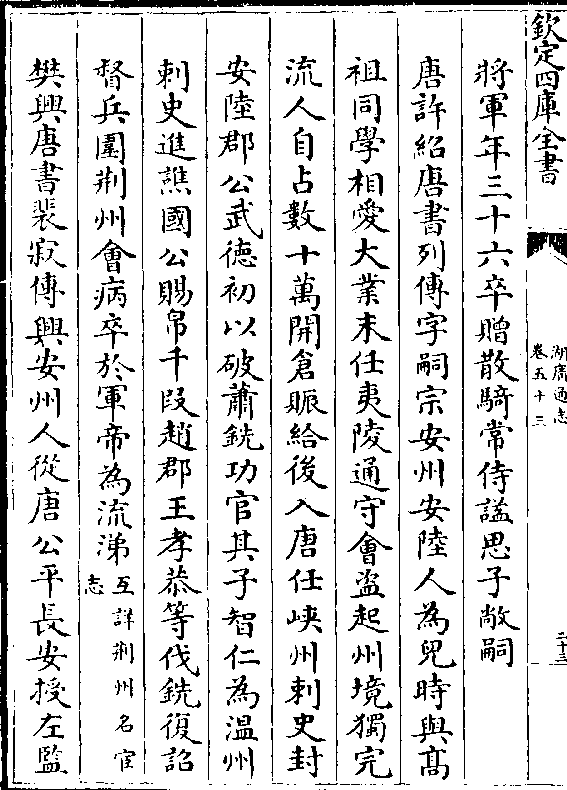 欽定四庫全書
湖廣通志
卷五十三
二十三
將軍年三十六卒贈散騎常侍諡思子敞嗣
唐許紹唐書列傳字嗣宗安州安陸人為兒時與髙
祖同學相愛大業末任夷陵通守會盜起州境獨完
流人自占數十萬開倉賑給後入唐任峽州刺史封
安陸郡公武德初以破蕭銑功官其子智仁為溫州
刺史進譙國公賜帛千段趙郡王孝恭等伐銑復詔
督兵圍荆州會病卒於軍帝為流涕互詳荆州名宦
志
樊興唐書裴寂傳興安州人從唐公平長安授左監